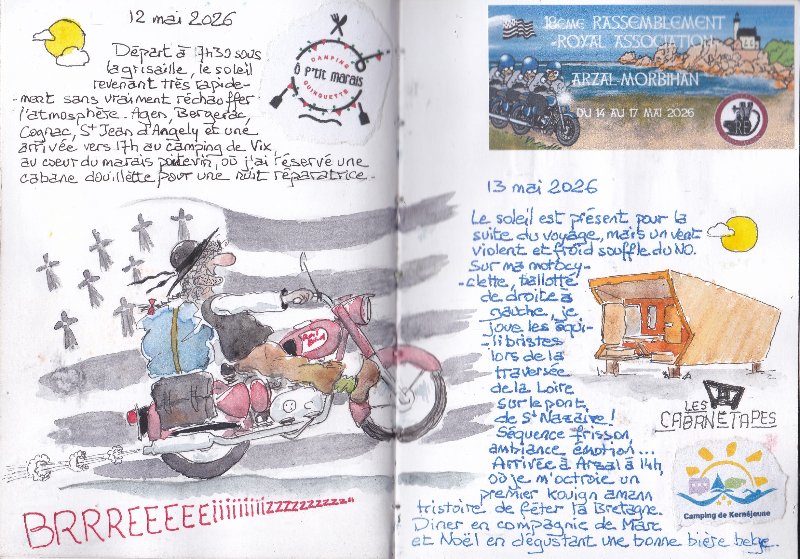 12 mai 2026
Départ à 7h30 sous
la grisaille, le soleil
revenant très rapide-
-ment sans vraiment réchauffer
l'atmosphère. Agen, Bergerac,
Cognac, St Jean d'Angely et une
arrivée vers 17h au camping de Vix
au coeur du marais poitevin, où j'ai réservé une
cabane douillette pour une nuit réparatrice.
CAMPING
Ô P'TIT MARAIS
GUINGUETTE
BRRREEEEEiiiiiiiiiizzzzzzzzzz"
18ÈME RASSEMBLEMENT
ROYAL ASSOCIATION
ARZAL MORBIHAN
DU 14 AU 17 MAI 2026
13 mai 2026
Le soleil est présent pour la
suite du voyage, mais un vent
violent et froid souffle du NO.
Sur ma motocy-
-clette, ballotté
de droite à
gauche, je
joue les équi-
-libristes
lors de la
traversée
de la Loire
sur le pont
de St Nazaire !
Séquence frisson,
ambiance émotion...
Arrivée à Arzal à 14h,
où je m'octroie un
premier kouign amann
histoire de fêter la Bretagne.
Dîner en compagnie de Marc
et Noël en dégustant une bonne bière belge.
LES
CABANÉTAPES
Camping de Kernéjeune